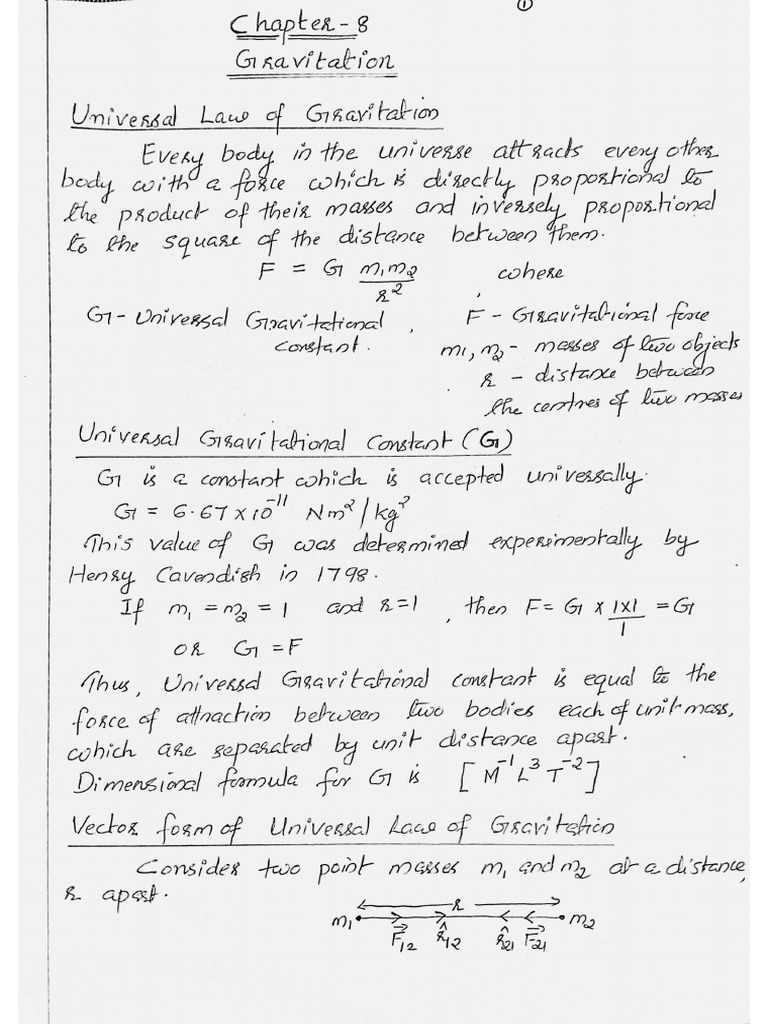 ①
Chapter-8
Gravitation
Universal Law of Gravitation
Every body in the universe attracts every other
body with a force which is directly proportional to
the product of their masses and inversely proportional
to the square of the distance between them.
F = G m₁m₂/r² where
G - Universal Gravitational constant. F - Gravitational force
m₁, m₂ - masses of two objects
r - distance between
the centres of two masses
Universal Gravitational Constant (G)
G is a constant which is accepted universally.
G = 6.67×10⁻¹¹ Nm²/kg²
This value of G was determined experimentally by
Henry Cavendish in 1798.
If m₁ = m₂ = 1 and r=1, then F= G × 1×1/1 = G
or G = F
Thus, Universal Gravitational constant is equal to the
force of attraction between two bodies each of unit mass,
which are separated by unit distance apart.
Dimensional formula for G is [M⁻¹L³T⁻²]
Vector form of Universal Law of Gravitation
Consider two point masses m₁ and m₂ at a distance,
r apart.
r
m₁ F⃗₁₂ r̂₁₂ r̂₂₁ F⃗₂₁ m₂